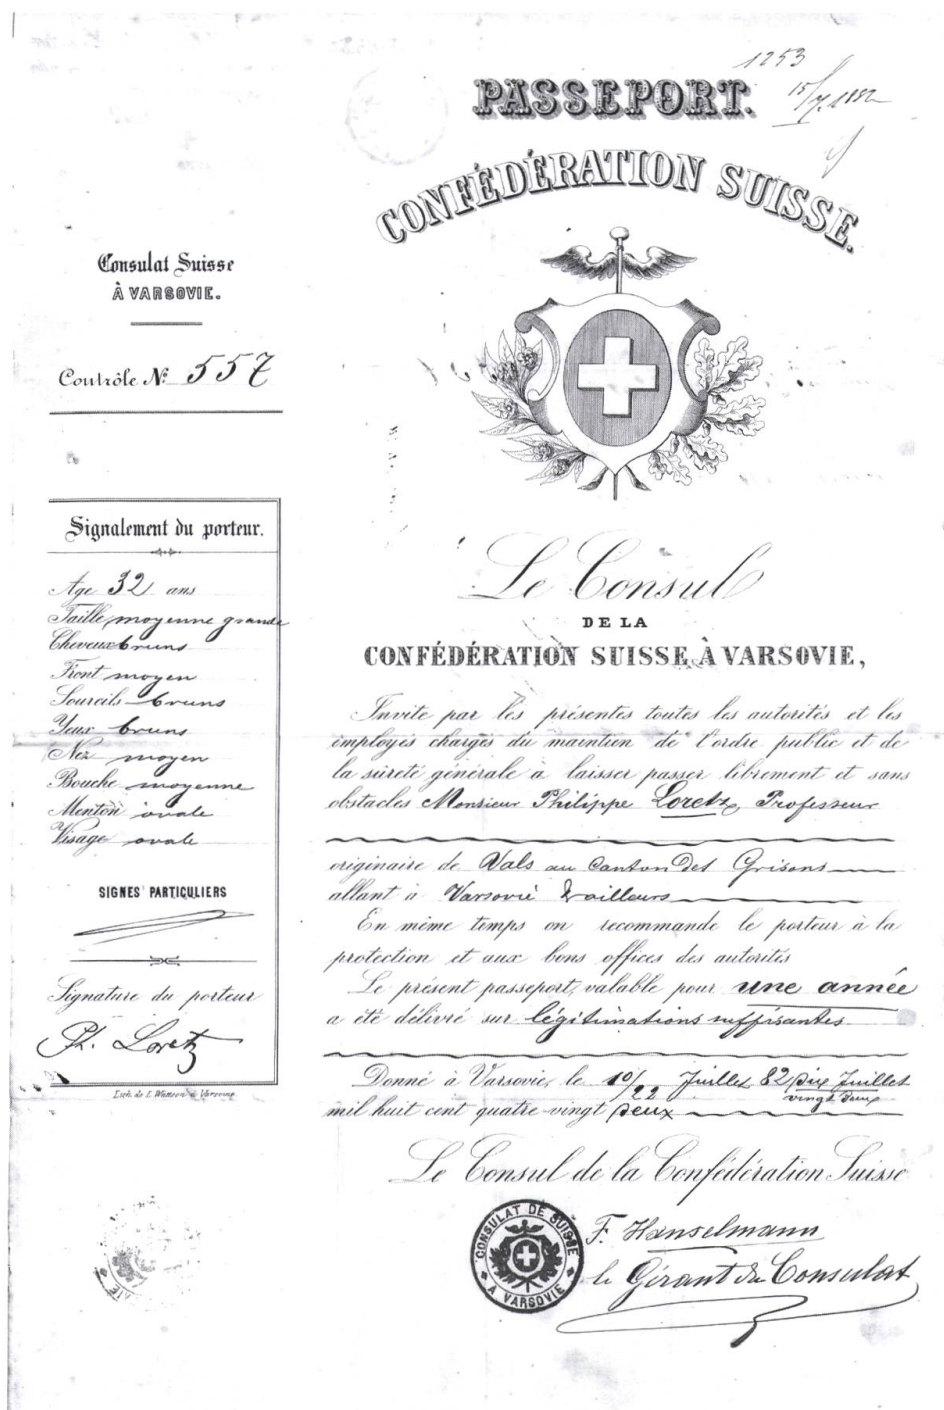 1253
15/7.1882
PASSEPORT.
CONFÉDÉRATION SUISSE.
Consulat Suisse
À VARSOVIE.
Contrôle № 557
Signalement du porteur.
Age 32 ans
Taille moyenne grande
Cheveux bruns
Front moyen
Sourcils bruns
Yeux bruns
Nez moyen
Bouche moyenne
Menton ovale
Visage ovale
SIGNES PARTICULIERS
Signature du porteur
Ph. Loretz
Lith. de L. à Varsovie
Le Consul
DE LA
CONFÉDÉRATION SUISSE À VARSOVIE,
Invite par les présentes toutes les autorités et les
employés chargés du maintien de l'ordre public et de
la sûreté générale à laisser passer librement et sans
obstacles Monsieur Philippe Loretz, Professeur
originaire de Vals au Canton des Grisons
allant à Varsovie & ailleurs
En même temps on recommande le porteur à la
protection et aux bons offices des autorités
Le présent passeport, valable pour une année
a été délivré sur légitimations suffisantes
Donné à Varsovie, le 10/22 Juillet 82 dix Juillet
vingt deux
mil huit cent quatre vingt deux
Le Consul de la Confédération Suisse
F. Hanselmann
le Gérant du Consulat
CONSULAT DE SUISSE
À VARSOVIE